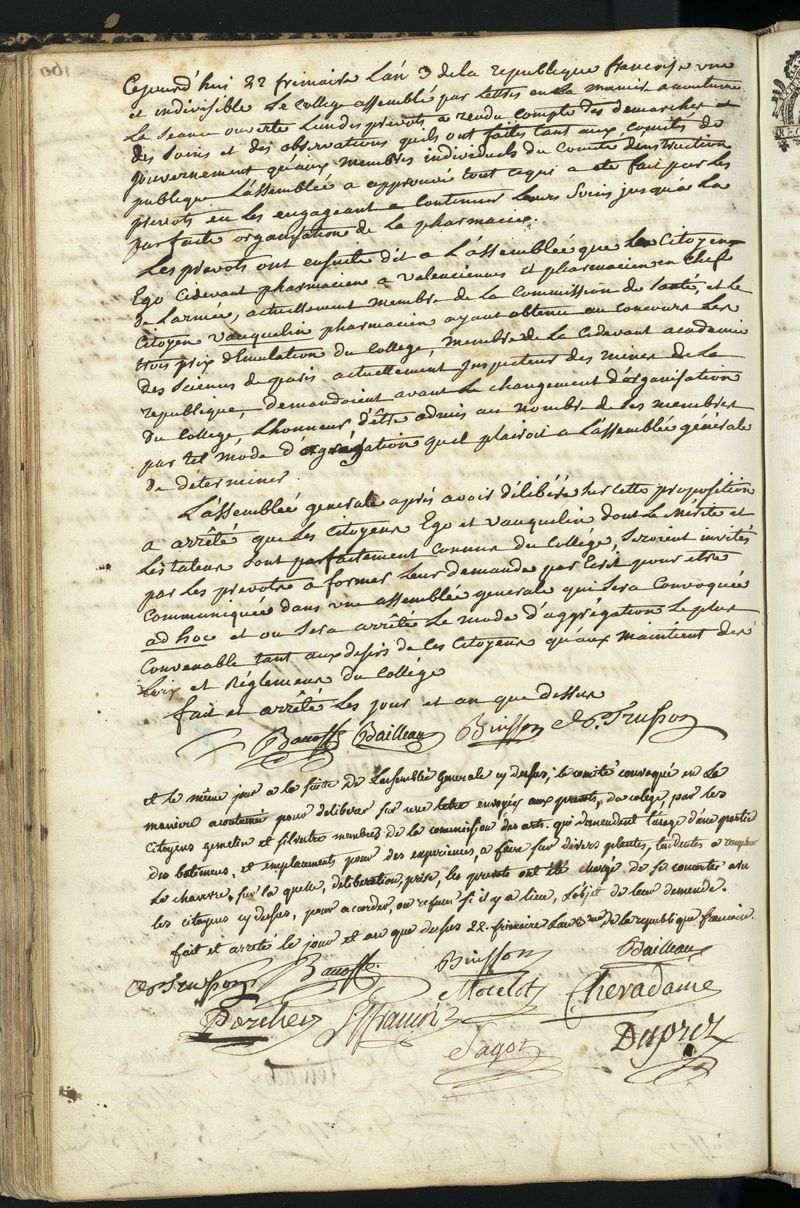 Cejourd'hui 22 frimaire L'an 3 de la republique francoise une
et indivisible Le College assemblé par lettres en la maniere acoutumée
La Seance ouverte L'un des prevots a rendu compte des demarches
des soins et des observations quils ont faites tant aux comités de
gouvernement qu'aux membres individuels du Comité d'instruction
publique L'assemblée a approuvé tout ce qui a eté fait par les
prevots en les engageant a Continuer leurs soins jusqu'a La
parfaite organisation de la pharmacie.
Les prevots ont ensuite dit a L'assemblée que Le Citoyen
Ego Cidevant pharmacien a Valenciennes et pharmacien en chef
de L'armée, actuellement membre de la Commission de Santé, et le
Citoyen Vauquelin pharmacien ayant obtenu au concours Les
trois prix d'Emulation du College, membre de la Cidevant academie
des Sciences de paris actuellement Inspecteur des mines de la
republique, demandoient avant Le changement d'organisation
du College, L'honneur d'être admis au nombre de ses membres
par tel mode d'agrégation quil plairoit a L'assemblée générale
de déterminer.
L'assemblée generale après avoir délibéré sur cette proposition
a arrêté que Les Citoyens Ego et Vauquelin dont Le Mérite et
Les talens sont parfaitement Connus du College, seroient invités
par Les prevots a former leur demande par Ecrit pour etre
Communiquée dans une assemblée generale qui sera Convoquée
ad hoc et ou sera arrêté Le mode d'aggrégation Le plus
Convenable tant aux desirs de ces Citoyens qu'aux maintient des
Loix et Réglemens du Collége
fait et arrêté les jour et an que dessus
Bacoffe Bailleau Buisson Trusson
et le même jour a la suitte de Lassemblé Generale cy desus, le comité convoqué en La
maniere acoutumé pour deliberer sur une letre envoyés aux prevots, du colege, par les
Citoyens gmelin et silvestre membres de la commission des arts. qui demandent l'usage d'une partie
des batimens, et emplacement, pour des experiences, a faire sur divers plantes, tendentes a remplacer
Le chanvre. sur la quele, déliberation, prise, les prevots ont eté chargé de se concerter avec
les citoyens cy desus, pour acorder, ou refuser si il y a lieu, L'objet de leur demande.
fait et arreté le jour et an que desus 22. frimaire Lan 3me de la republique francoise.
Trusson Bacoffe Buisson Bailleau
Porcher Moeelot Cheradame
Jagot Duprez